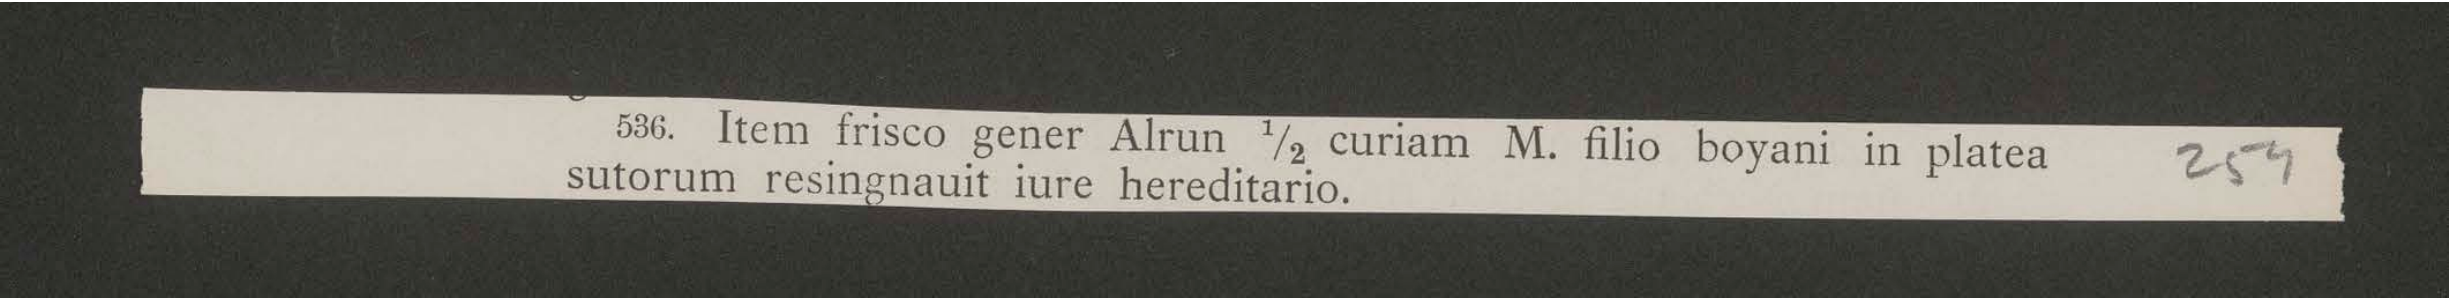 536. Item frisco gener Alrun 1/2 curiam M. filio boyani in platea 254
sutorum resingnauit iure hereditario.